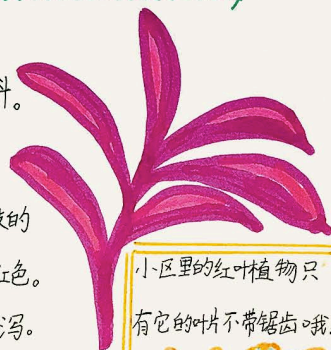 科。
的
红色。
泻。
小区里的红叶植物只
有它的叶片不带锯齿哦